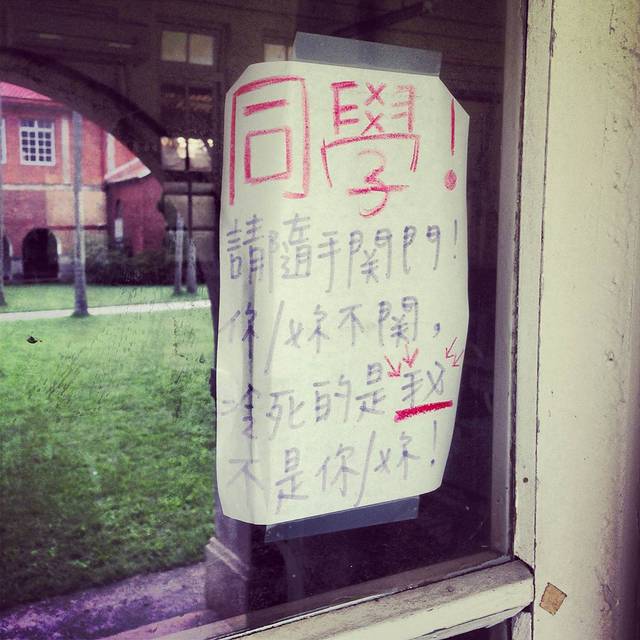 同學!
請隨手関門!
你/妳不関,
冷死的是我
不是你/妳!